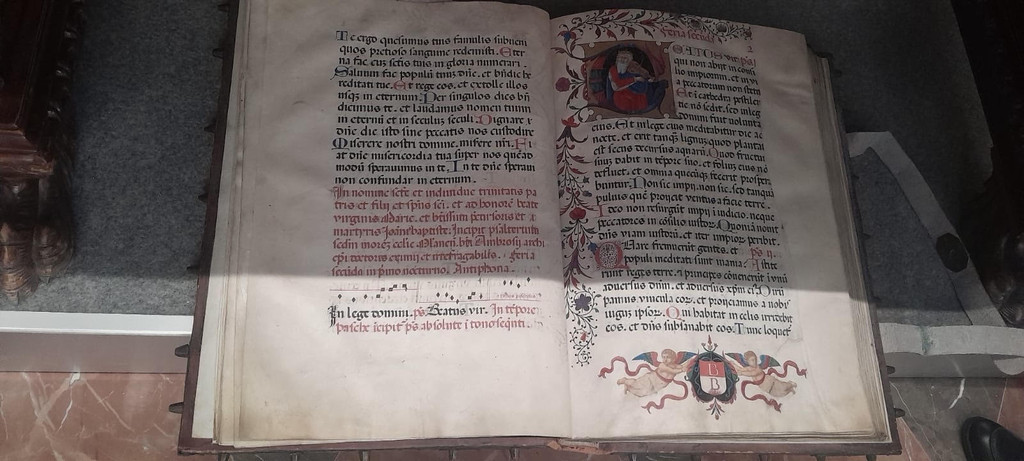 Te ergo quesumus tuis famulis subveni
quos pretioso sanguine redemisti. Eter
na fac cuz sctis tuis in gloria numerari.
Salvum fac populū tuuz dñe. et bñdic he
reditati tue. Et rege eos. et extolle illos
usqz in eternum. Per singulos dies bñ
dicimus te. et laudamus nomen tuum
in eternū et in seculuz seculi. Dignare
dñe die isto sine peccatis nos custodire
Miserere nostri domine. misere nr̄i. Fi
at dñe misericordia tua super nos quead
modū speravimus in te. In te dñe speravi
non confundar in eternum.
In nomine scte et individue trinitatis pa
tris et filij et spūs sci. et ad honorē beate
virginis Marie. et btīssimi
martyris Joānis baptiste. Incipit psalterium
sedm morēz Ambrosij archi
epi doctoris eximij et
secūdo in pmo nocturno. Antiphona.
In lege domini. ps. Beatus vir. In tēpore
pasche īcipit ps absolute
feria secūda
2
EATUS vir qui
qui non abijt in consi
lio impiorum. et in via
peccatorum non stetit
Et i cathedra pestilen
tie nō sedit. sed in lege
domini fuit volunta
eius. Et in lege eius meditabitur die ac
nocte. et erit tanqz lignuz quod plantatuz
est secus decursus aquarū. Quod fructuz
suuz dabit in tēpore suo. et foliuz eius nō
defluet. et omnia quecūqz fecerit prospera
buntur. Non sic impij. non sic. sed tanquaz
pulvis quē proijcit ventus a facie terre.
Ideo non resurgūt impij i iudicio. neque
peccatores in cōsilio iustor. Quoniā novit
dñs viam iustorū. et iter impior peribit.
Quare fremuerūt gentes. et ps ij.
populi meditati sunt inania. Astite
runt reges terre. et principes cōvenerūt ī unū
adversus dnm. et adversus xpm eius. Dirū
pamus vincula eor. et proijciamus a nobis
iugus ipsor. Qui habitat in celis irridebit
eos. et dñs subsanabit eos. Tunc loquet
B
B